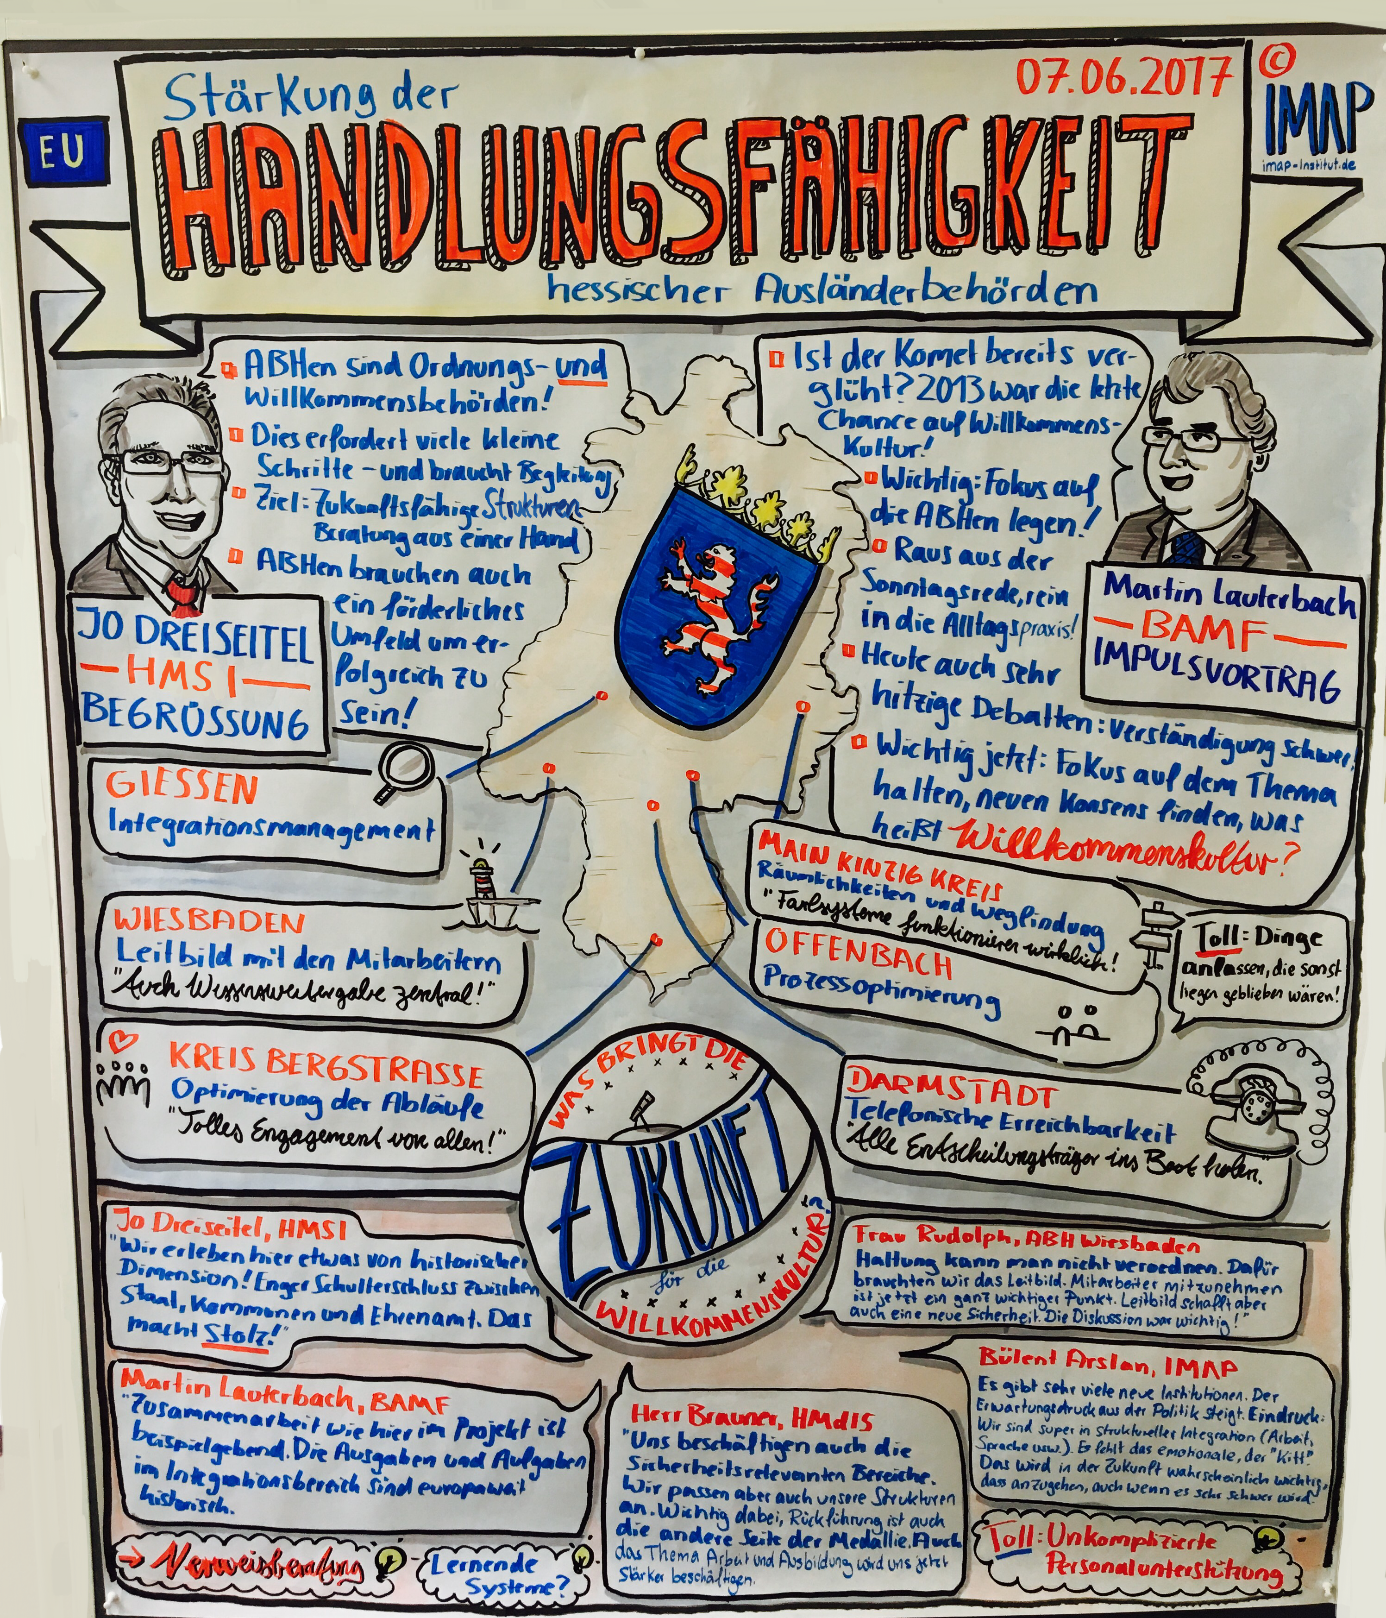 Stärkung der
07.06.2017
©
IMAP
imap-institut.de
EU
HANDLUNGSFÄHIGKEIT
hessischer Ausländerbehörden
ABHen sind Ordnungs- und
Willkommensbehörden!
Dies erfordert viele kleine
Schritte - und braucht Begleitung
Ziel: Zukunftsfähige Strukturen
Beratung aus einer Hand
ABHen brauchen auch
ein förderliches
Umfeld um er-
folgreich zu
sein!
JO DREISEITEL
- HMSI -
BEGRÜSSUNG
Ist der Komet bereits ver-
glüht? 2013 war die letzte
Chance auf Willkommens-
Kultur!
Wichtig: Fokus auf
die ABHen legen!
Raus aus der
Sonntagsrede, rein
in die Alltagspraxis!
Heute auch sehr
hitzige Debatten: Verständigung schwer!
Wichtig jetzt: Fokus auf dem Thema
halten, neuen Konsens finden, was
heißt Willkommenskultur?
Martin Lauterbach
- BAMF -
IMPULSVORTRAG
GIESSEN
Integrationsmanagement
WIESBADEN
Leitbild mit den Mitarbeitern
"Auch Wissensweitergabe zentral!"
KREIS BERGSTRASSE
Optimierung der Abläufe
"Tolles Engagement von allen!"
MAIN KINZIG KREIS
Räumlichkeiten und Wegfindung
"Farbsysteme funktionieren wirklich!
OFFENBACH
Prozessoptimierung
Toll: Dinge
anfassen, die sonst
liegen geblieben wären!
DARMSTADT
Telefonische Erreichbarkeit
"Alle Entscheidungsträger ins Boot holen."
WAS BRINGT DIE
ZUKUNFT
für die
WILLKOMMENSKULTUR
in?
Jo Dreiseitel, HMSI
"Wir erleben hier etwas von historischer
Dimension! Enger Schulterschluss zwischen
Staat, Kommunen und Ehrenamt. Das
macht Stolz!"
Martin Lauterbach, BAMF
"Zusammenarbeit wie hier im Projekt ist
beispielgebend. Die Ausgaben und Aufgaben
im Integrationsbereich sind europaweit
historisch.
→ Verweisberatung
Lernende
Systeme?
Herr Brauner, HMdIS
"Uns beschäftigen auch die
Sicherheitsrelevanten Bereiche.
Wir passen aber auch unsere Strukturen
an. Wichtig dabei, Rückführung ist auch
die andere Seite der Medallie. Auch
das Thema Arbeit und Ausbildung wird uns jetzt
stärker beschäftigen.
Frau Rudolph, ABH Wiesbaden
Haltung kann man nicht verordnen. Dafür
brauchten wir das Leitbild. Mitarbeiter mitzunehmen
ist jetzt ein ganz wichtiger Punkt. Leitbild schafft aber
auch eine neue Sicherheit. Die Diskussion war wichtig!"
Bülent Arslan, IMAP
Es gibt sehr viele neue Institutionen. Der
Erwartungsdruck aus der Politik steigt. Eindruck:
Wir sind super in struktureller Integration (Arbeit,
Sprache usw.). Es fehlt das emotionale, der "Kitt".
Das wird in der Zukunft wahrscheinlich wichtig,
dass anzugehen, auch wenn es sehr schwer wird."
Toll: Unkomplizierte
Personalunterstützung